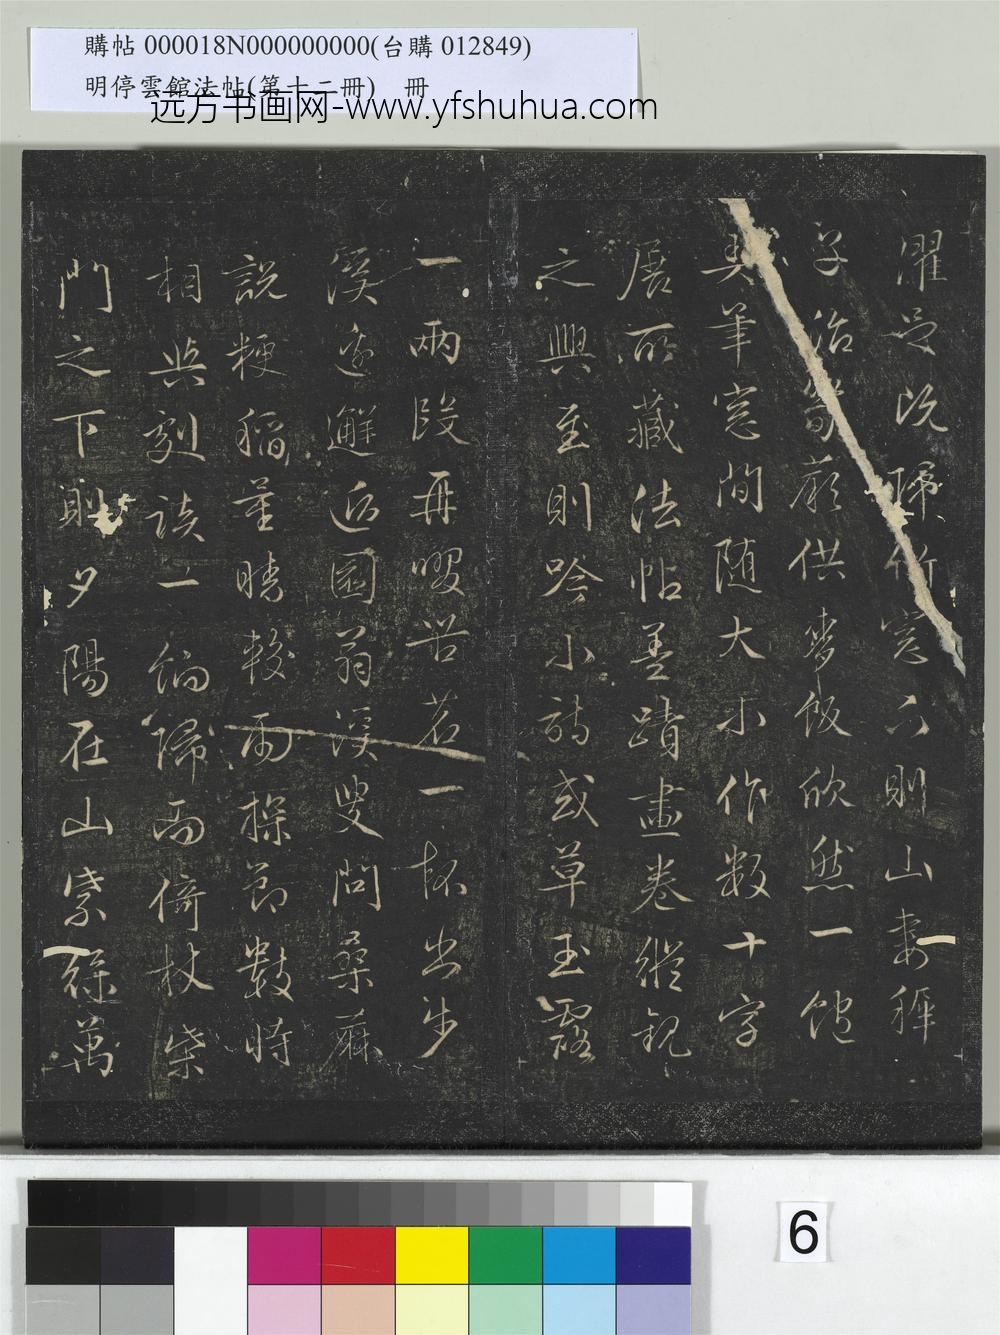 購帖 000018N000000000(台購 012849)
明停雲館法帖(第十二冊) 冊
远方书画网-www.yfshuhua.com
濯足既歸竹窓下則山妻稚
子治筍蕨供麥飯欣然一飽
弄筆窓間隨大小作數十字
展所藏法帖墨蹟畫卷縱觀
之興至則吟小詩或草玉露
一兩段再啜苦茗一杯出步
溪邊邂逅園翁溪叟問桑麻
說粳稻量晴較雨探節數時
相與劇談一餉歸而倚杖柴
門之下則夕陽在山紫綠萬
6